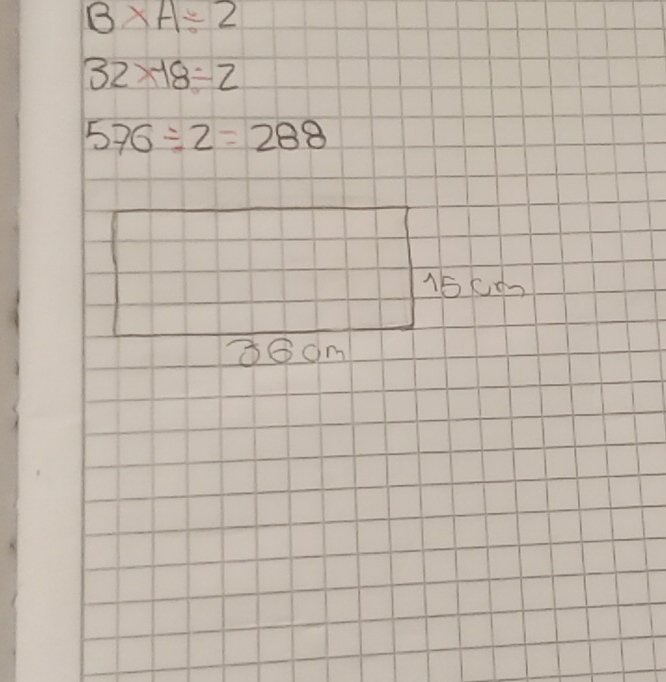 B×A÷2
32×18÷2
576÷2=288
15 cm
36 cm